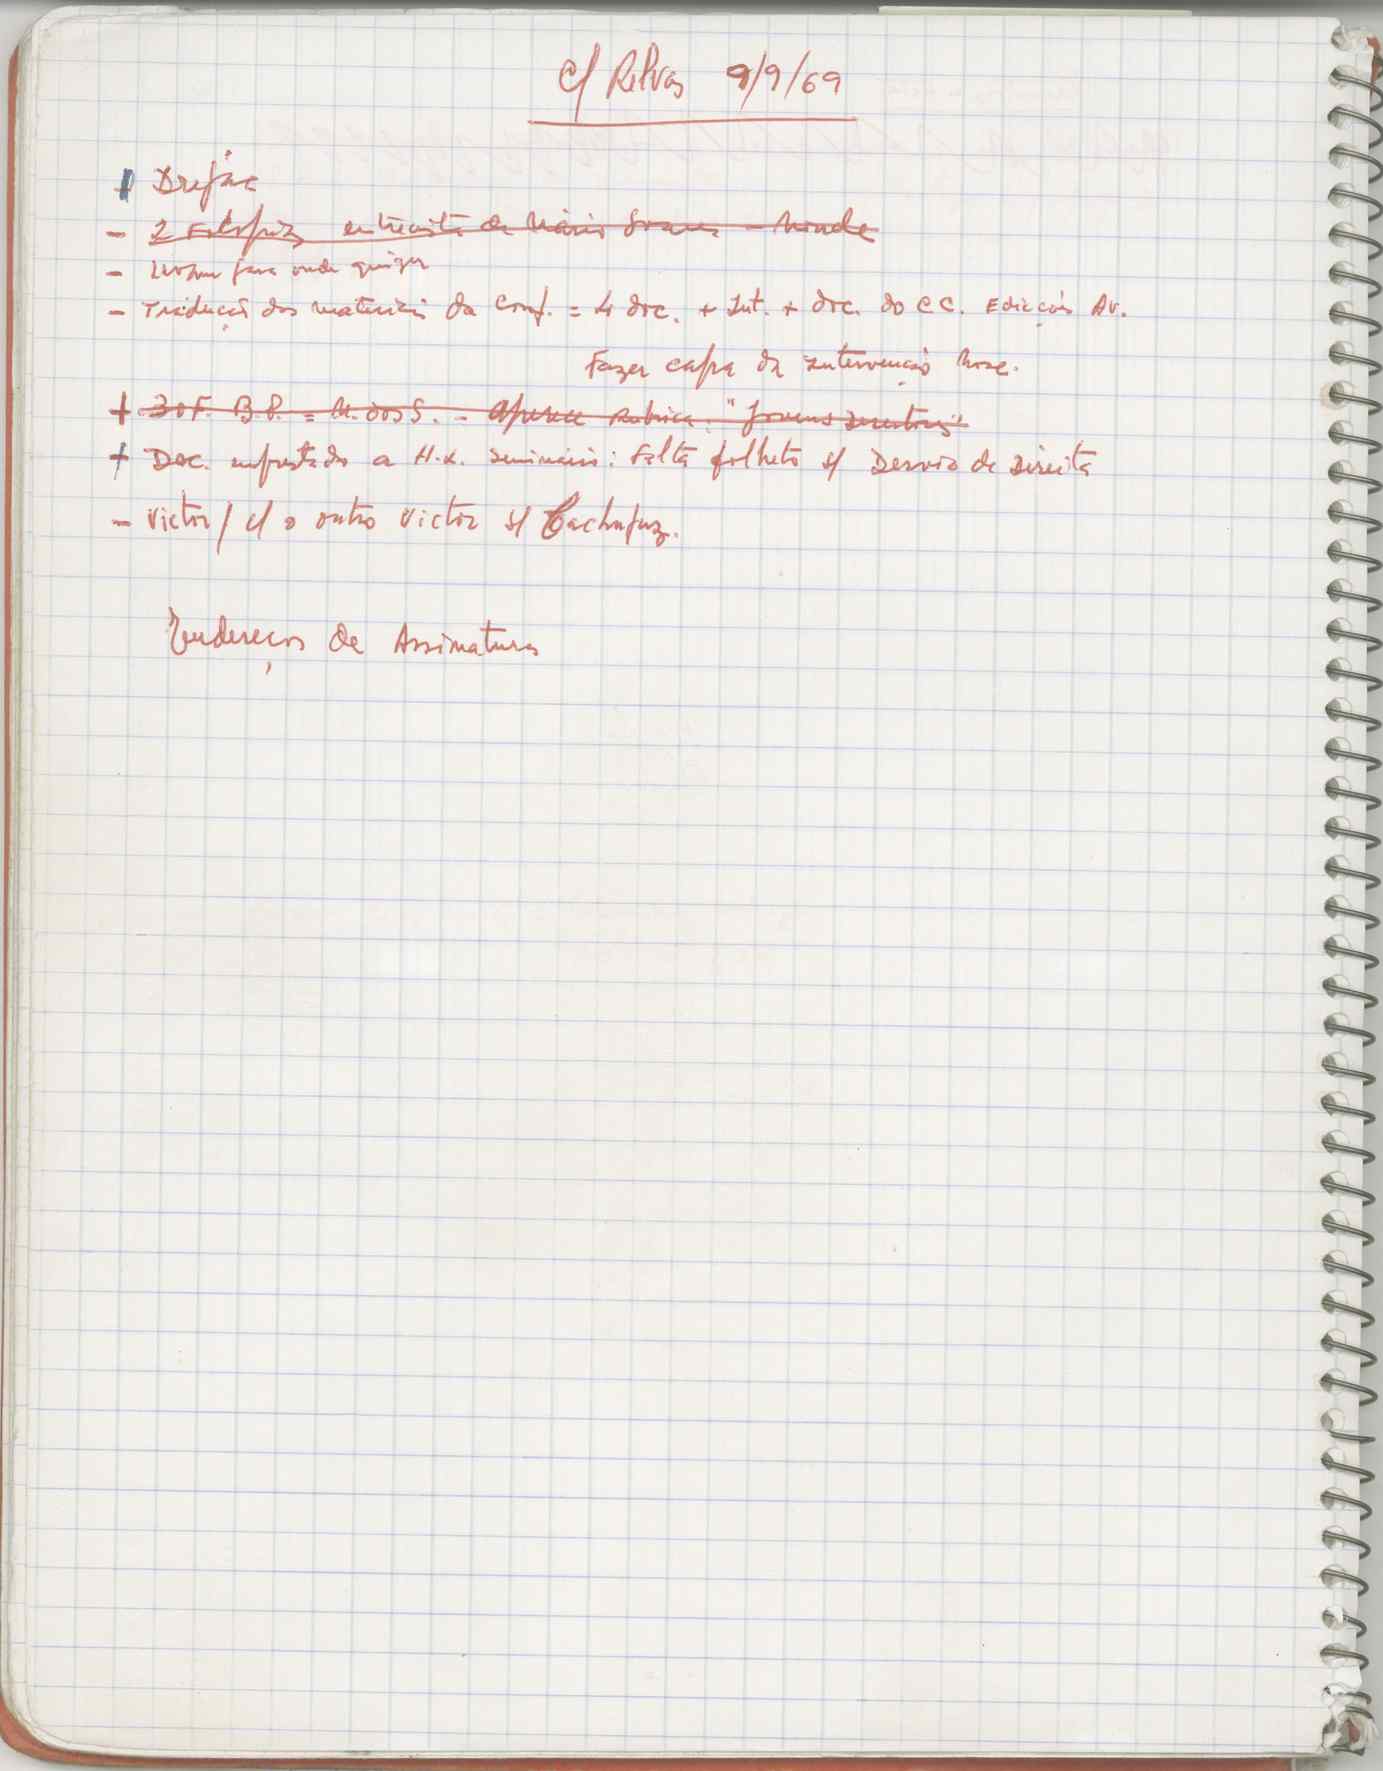 c/ Relvas 9/9/69
+
- 2 Fotocópias entrevista de Mário Soares - Monde
- para onde
- Tradução dos materiais da Conf. = 4 doc. + Int. + doc. do CC. Edições Av.
Fazer capa da Intervenção
+ 3 o F. B.P. = M. dos S. - aparece rubrica: "Jovens
+ Doc. emprestado a H.K. Seminário: Falta folheto s/ Desvio de Direita
- Victor / c/ o outro Victor s/ Cachapuz.
Endereços de Assinaturas